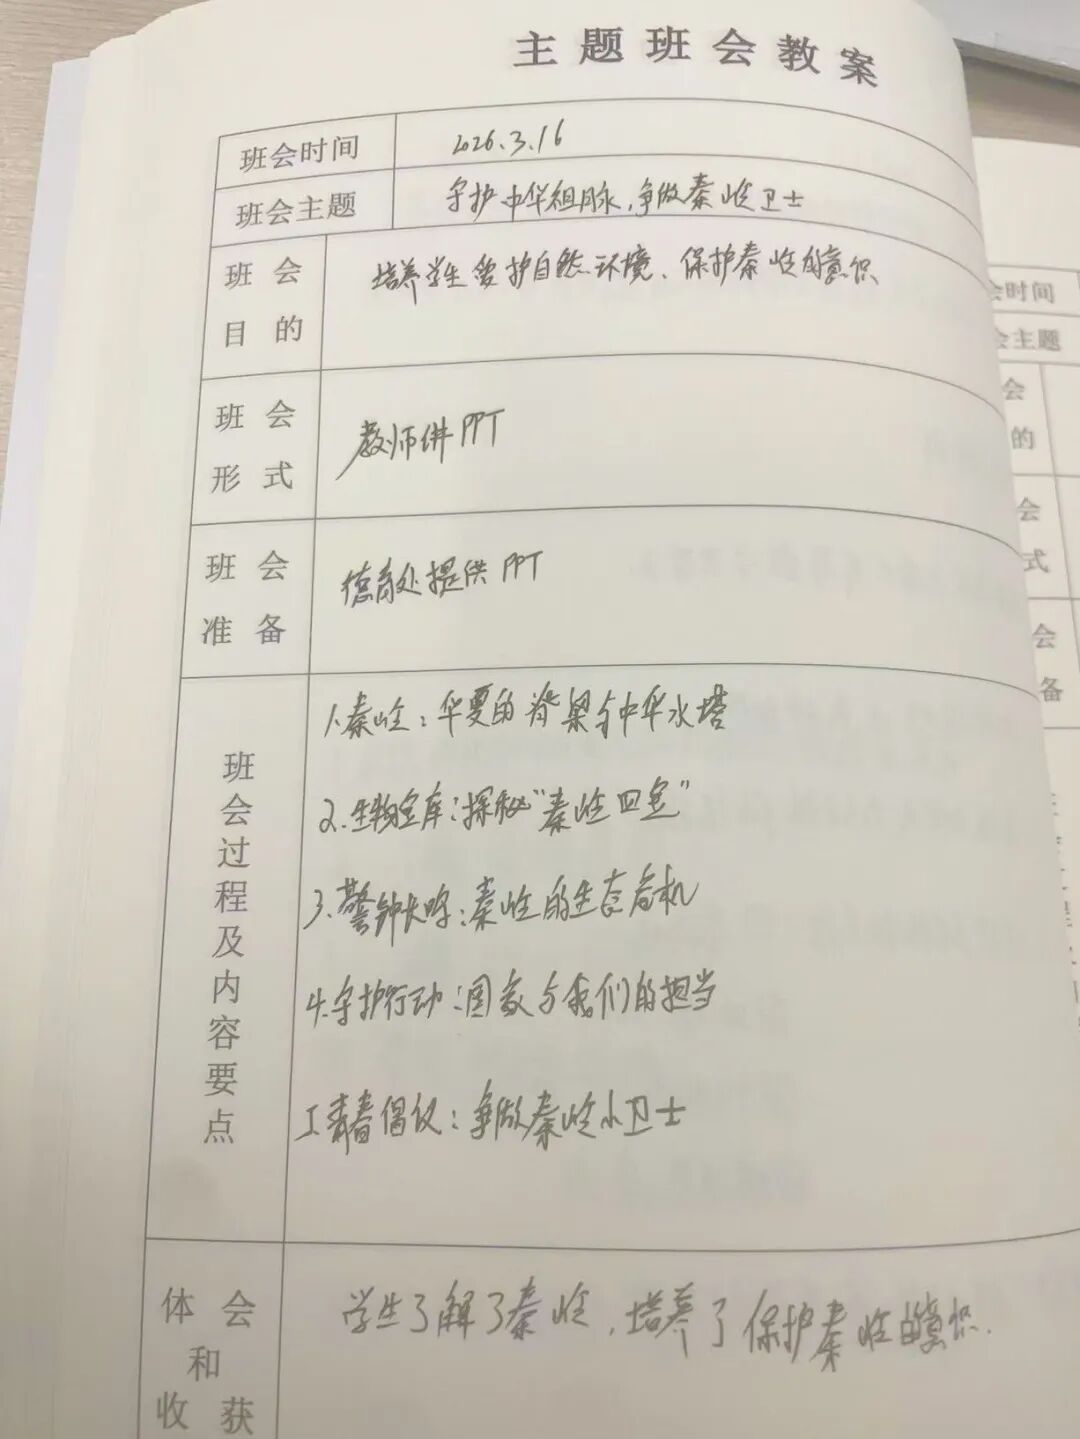 主题班会教案
班会时间 2026.3.16
班会主题 守护中华祖脉，争做秦岭卫士
班会目的 培养学生爱护自然环境、保护秦岭的意识
班会形式 教师讲PPT
班会准备 德育处提供PPT
班会过程及内容要点
1.秦岭：华夏的脊梁与中华水塔
2.生物宝库：探秘“秦岭四宝”
3.警钟长鸣：秦岭的生态危机
4.守护行动：国家与我们的担当
5.青春倡议：争做秦岭小卫士
体会和收获 学生了解了秦岭，培养了保护秦岭的意识.
会时间
会主题
会
的
会
式
会
备